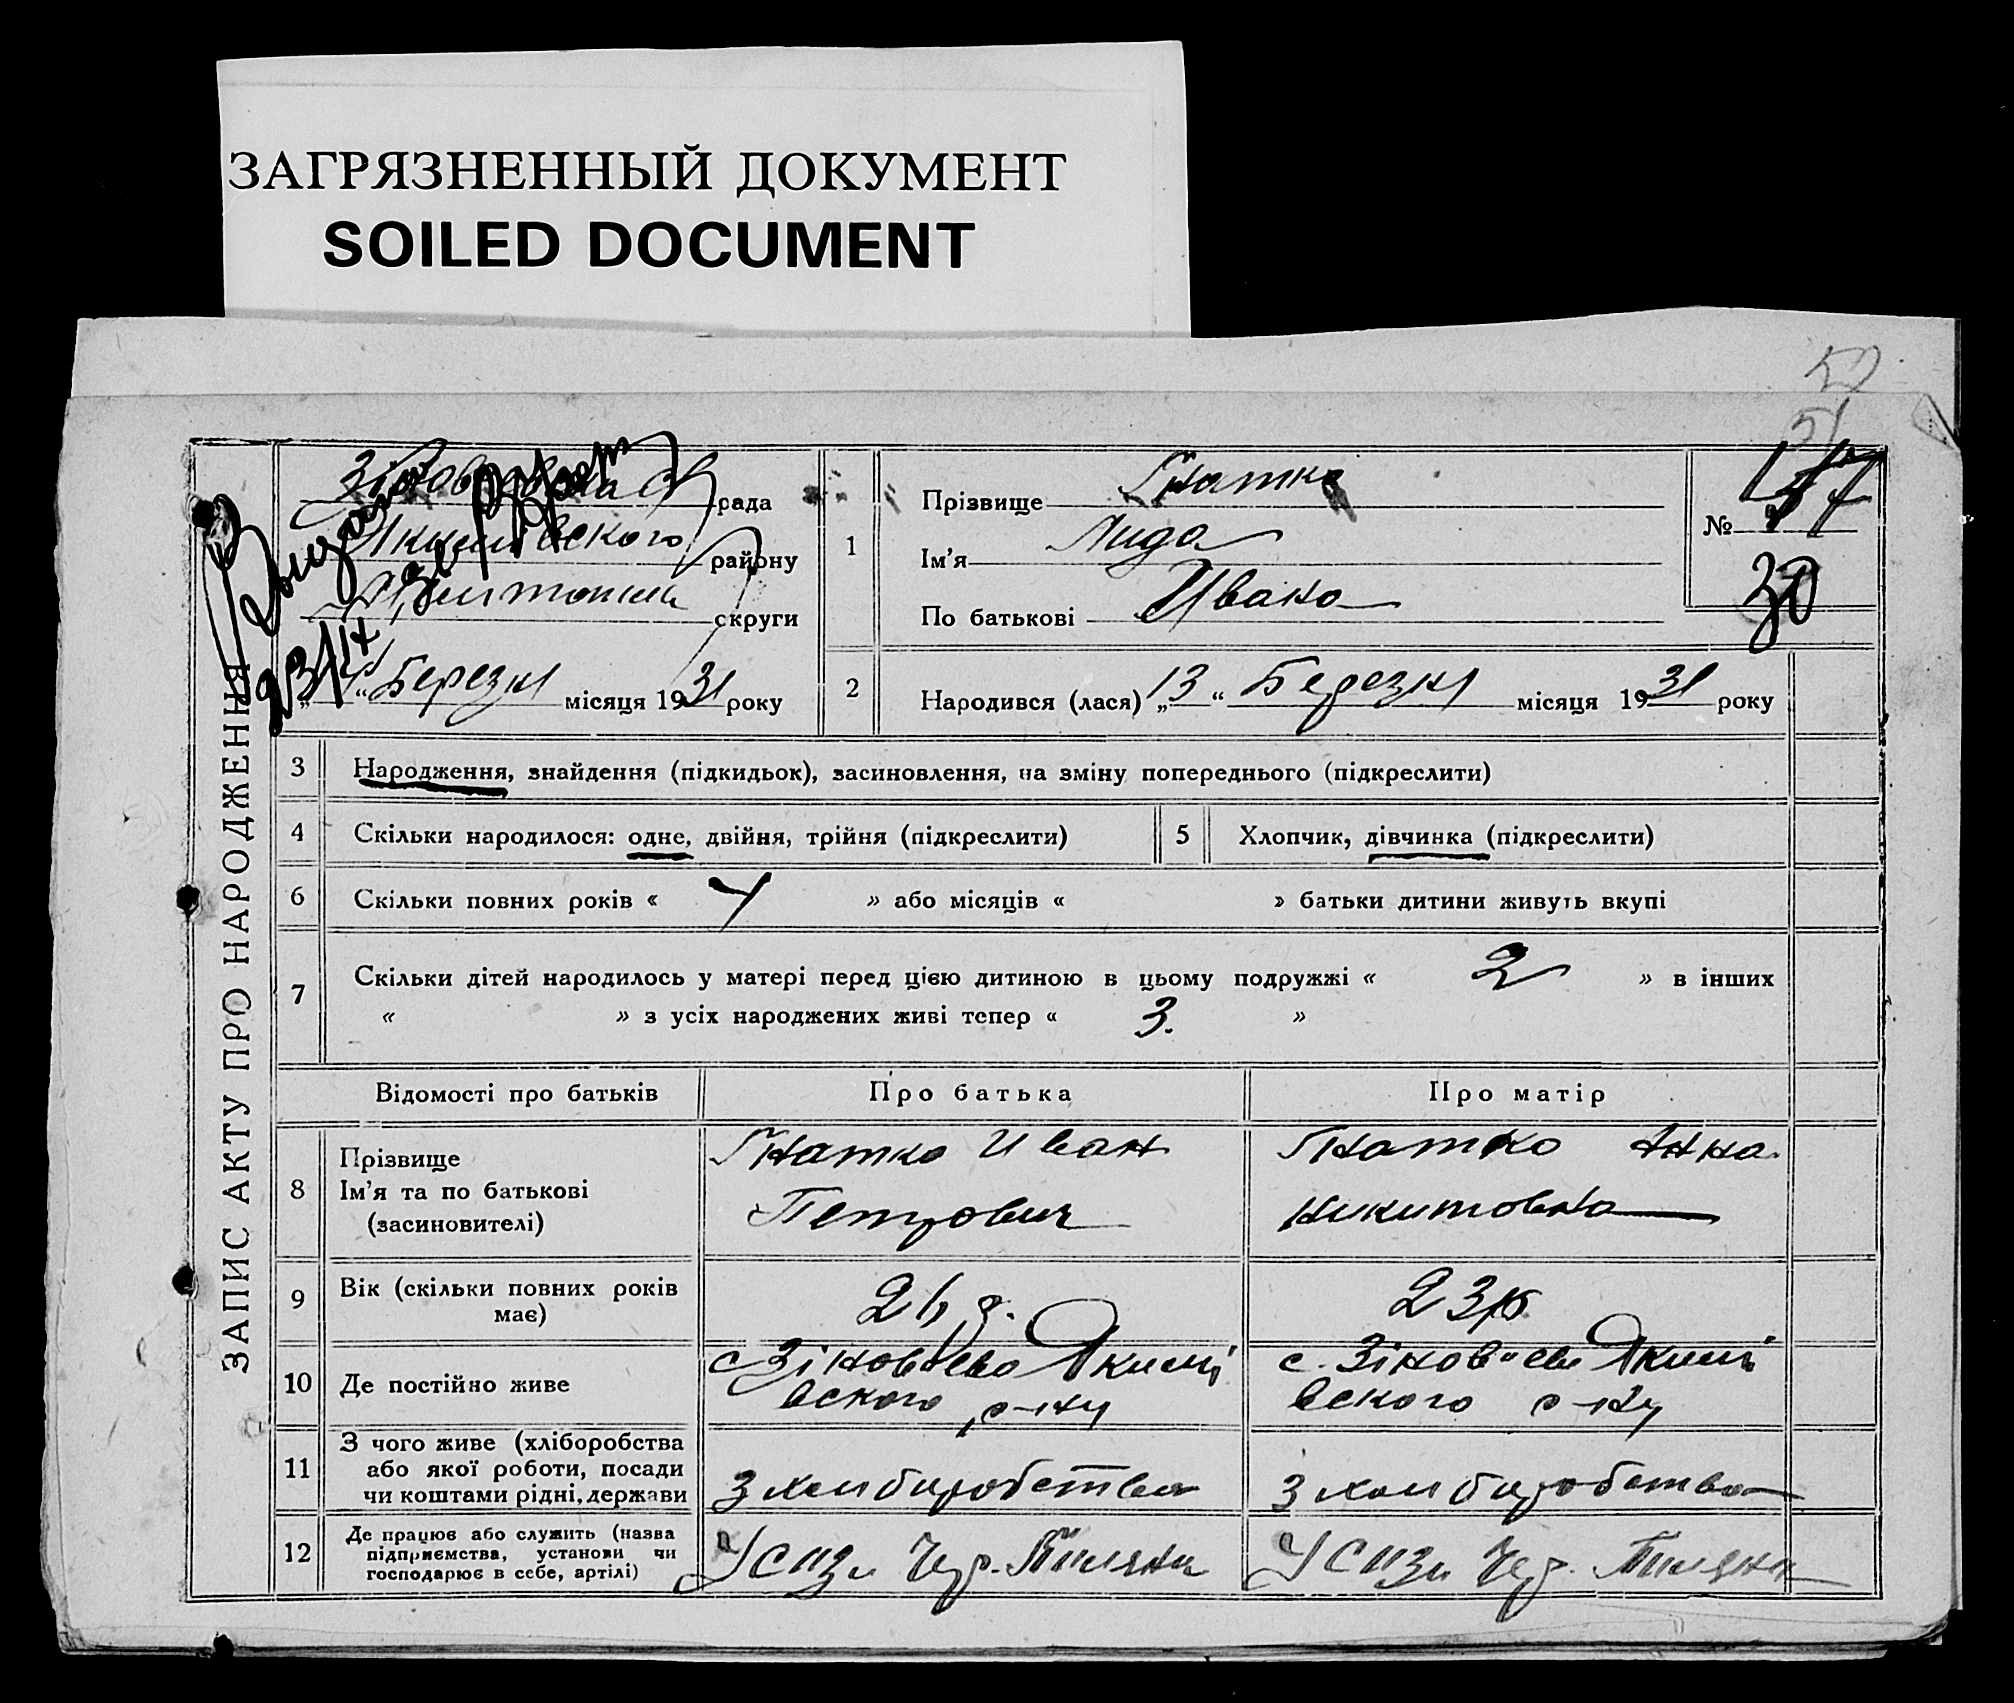 ЗАГРЯЗНЕННЫЙ ДОКУМЕНТ
SOILED DOCUMENT
ЗАПИС АКТУ ПРО НАРОДЖЕННЯ
рада
району
скруги
Березня місяця 1931 року
1
Прізвище Гнатко
Ім'я Лида
По батькові Ивано
№
30
2
Народився (лася) „13“ Березня місяця 1931 року
3
Народження, знайдення (підкидьок), засиновлення, на зміну попереднього (підкреслити)
4
Скільки народилося: одне, двійня, трійня (підкреслити)
5
Хлопчик, дівчинка (підкреслити)
6
Скільки повних років « 4 » або місяців « » батьки дитини живуть вкупі
7
Скільки дітей народилось у матері перед цією дитиною в цьому подружжі « 2 » в інших
« » з усіх народжених живі тепер « 3. »
Відомості про батьків
Про батька
Про матір
8
Прізвище
Ім'я та по батькові
(засиновителі)
Гнатко Иван
Петрович
Гнатко Анна
Никитовна
9
Вік (скільки повних років
має)
23
10
Де постійно живе
с. Зіновʼєво Якимі
вского р-ну
с. Зіновʼєво Якимі
вского р-ну
11
З чого живе (хліборобства
або якої роботи, посади
чи коштами рідні, держави
З хлиборобства
З хлиборобства
12
Де працює або служить (назва
підприємства, установи чи
господарює в себе, артілі)